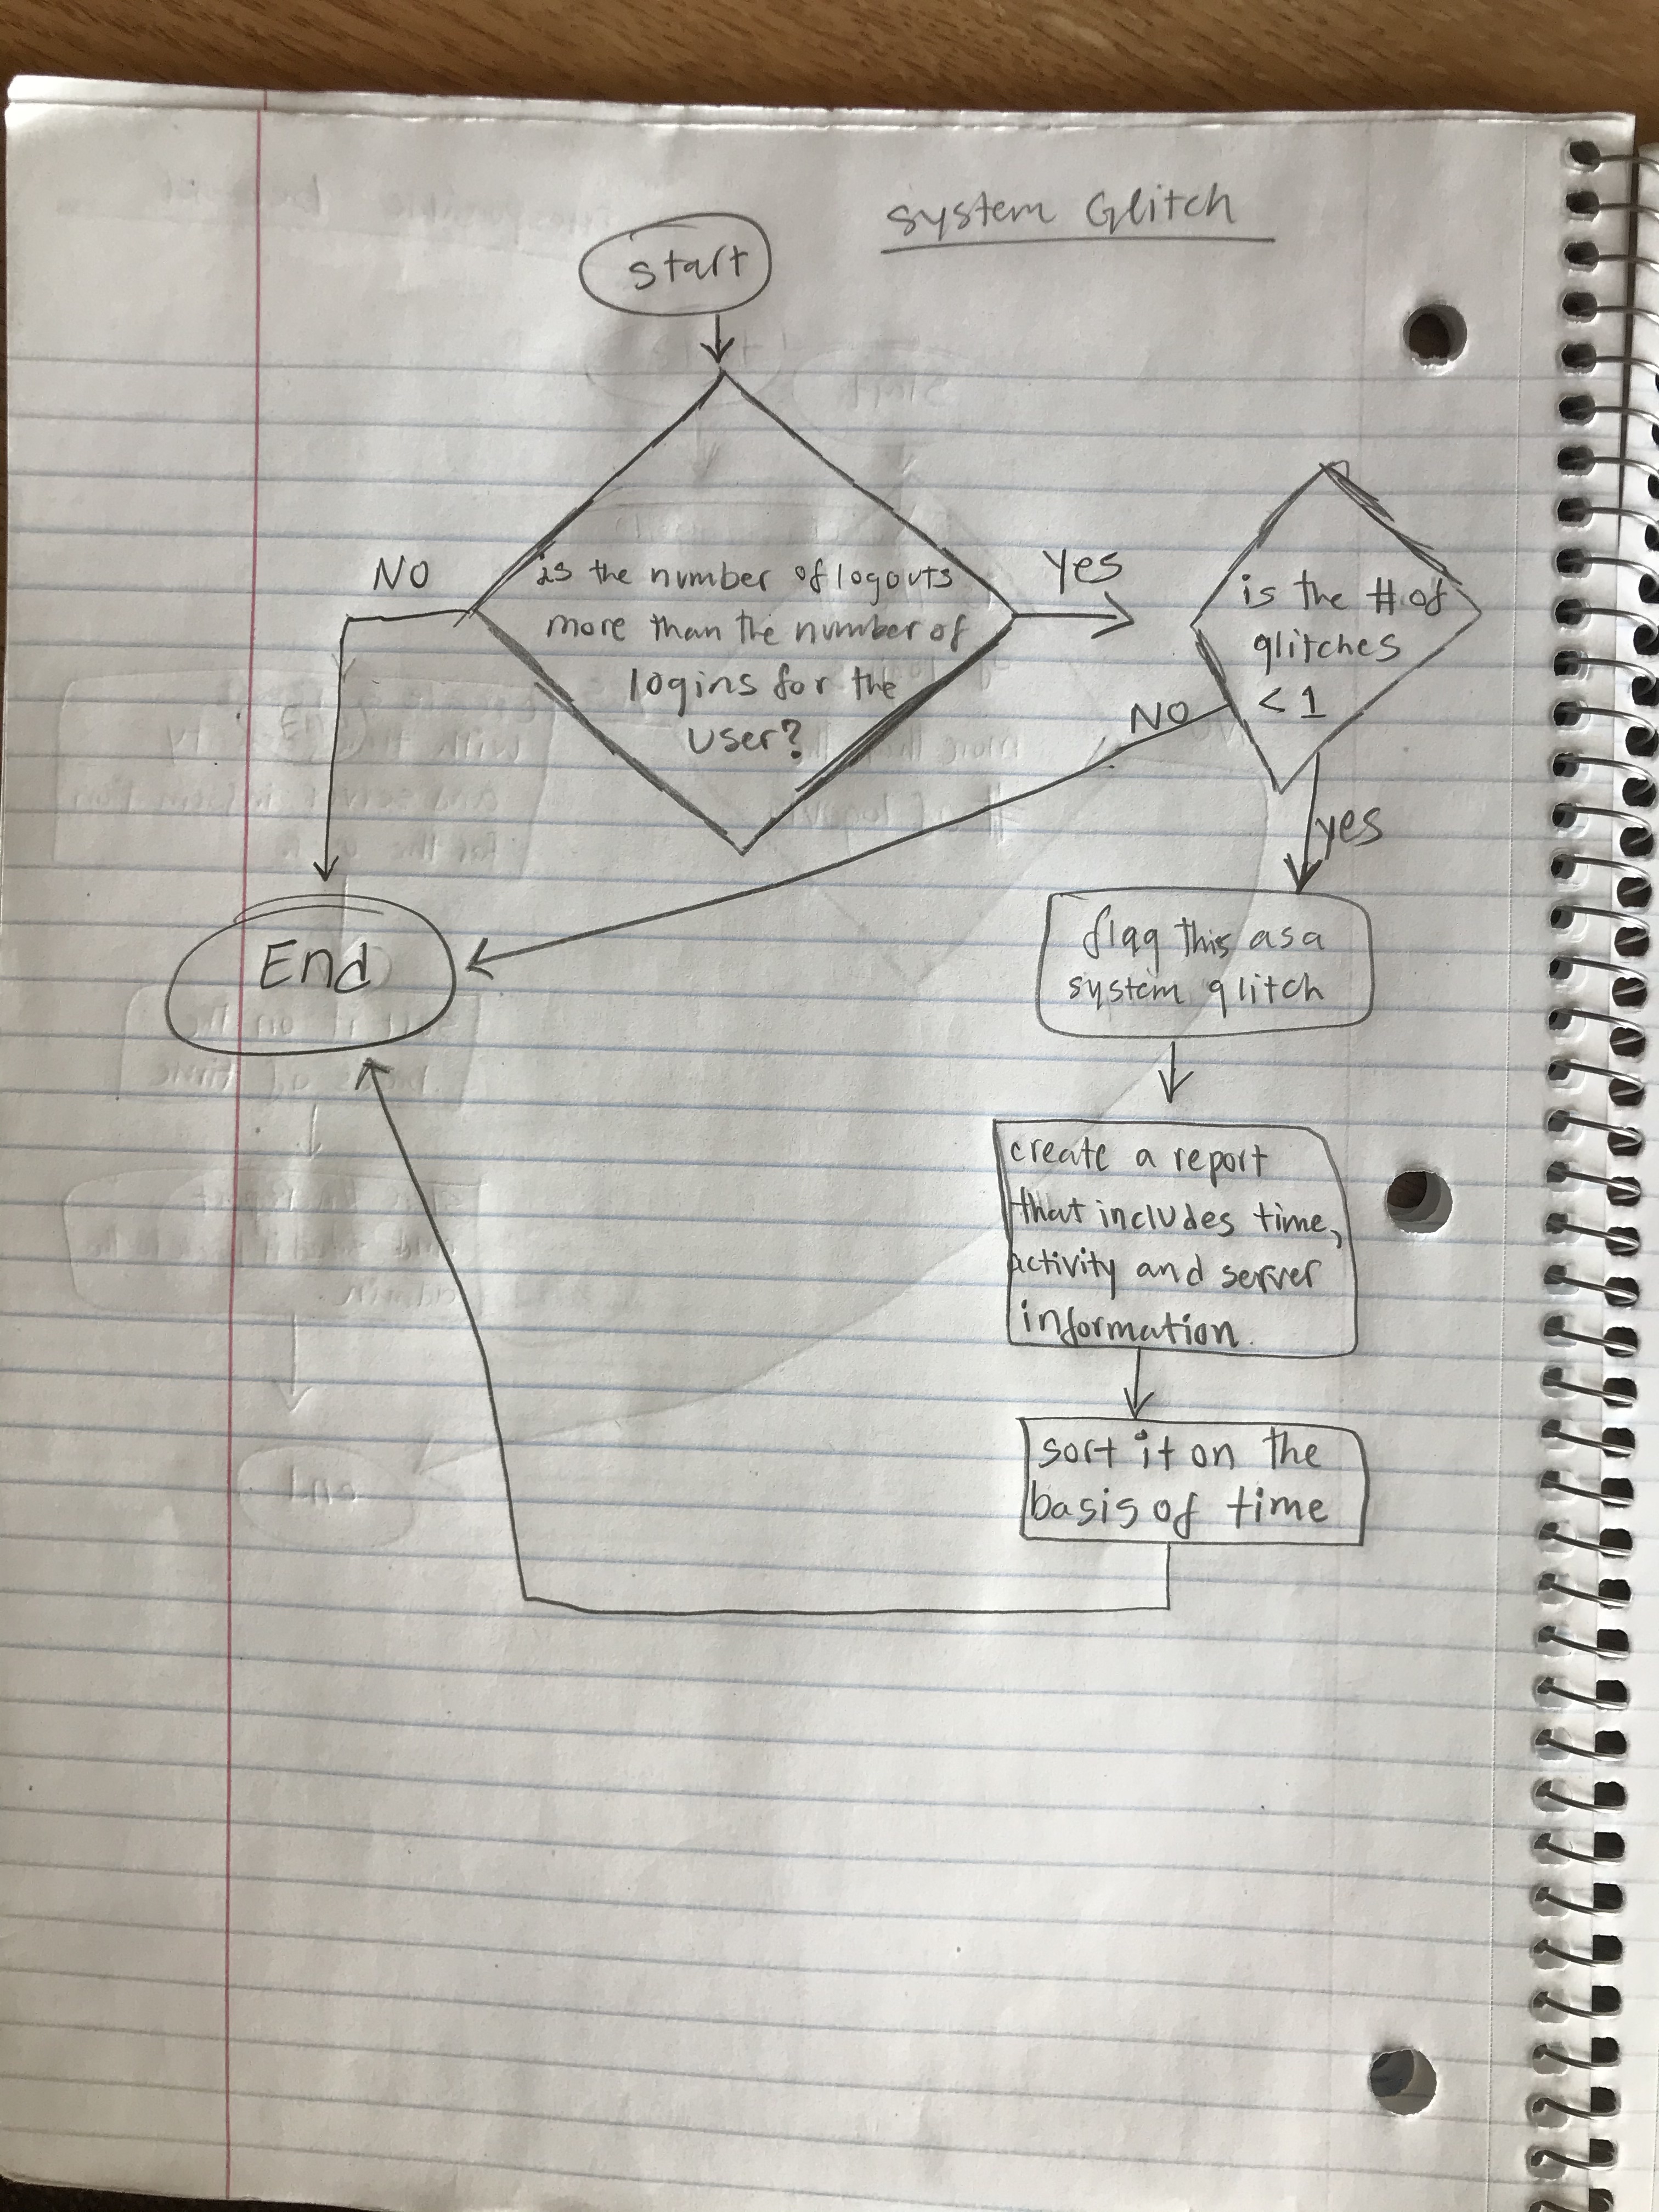 system Glitch
start
is the number of logouts
more than the number of
logins for the
user?
NO
Yes
is the # of
glitches
< 1
NO
yes
End
flag this as a
system glitch
create a report
that includes time,
activity and server
information.
sort it on the
basis of time